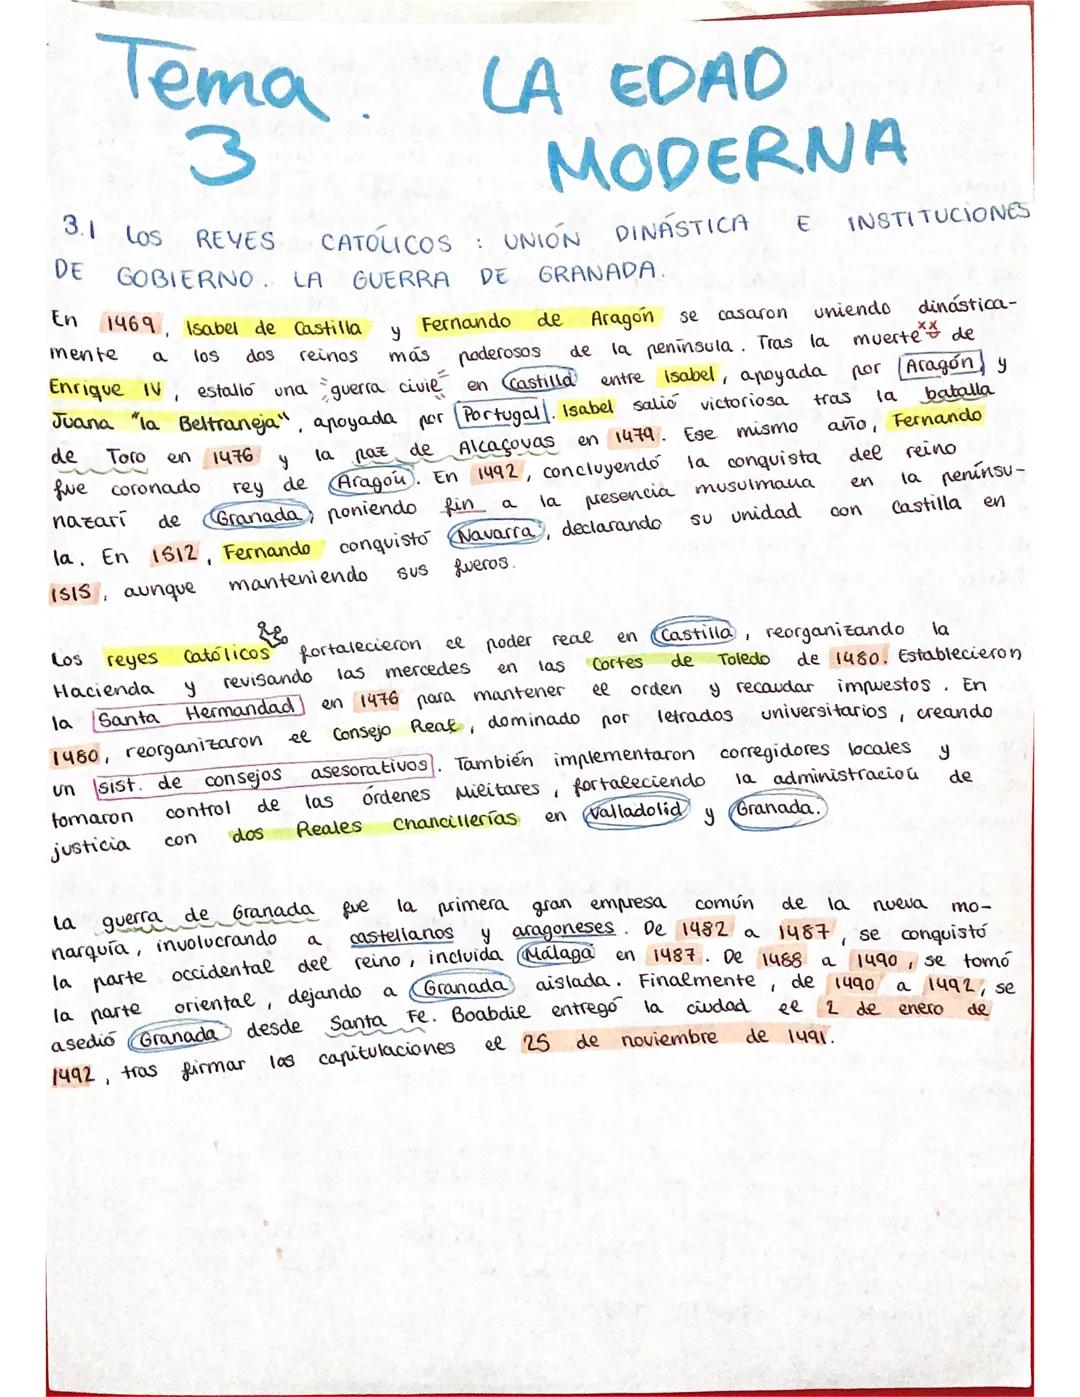 Tema 3. LA EDAD
MODERNA
3.1 LOS REYES CATÓLICOS : UNIÓN DINÁSTICA E INSTITUCIONES
DE GOBIERNO. LA GUERRA DE GRANADA.
En 1469, Isabel de Castilla y Fernando de Aragón se casaron uniendo dinástica-
mente a los dos reinos más poderosos de la península. Tras la muerte de
Enrique IV, estalló una "guerra civil" en Castilla entre Isabel, apoyada por Aragón y
Juana "la Beltraneja", apoyada por Portugal. Isabel salió victoriosa tras la batalla
de Toro en 1476 y la paz de Alcaçovas en 1479. Ese mismo año, Fernando
fue coronado rey de Aragón. En 1492, concluyendó la conquista del reino
nazarí de Granada, poniendo fin a la presencia musulmana en la penínsu-
la. En 1512, Fernando conquistó Navarra, declarando su unidad con Castilla en
1515, aunque manteniendo sus fueros.
Los reyes Católicos fortalecieron el poder real en Castilla, reorganizando la
Hacienda y revisando las mercedes en las Cortes de Toledo de 1480. Establecieron
la Santa Hermandad en 1476 para mantener el orden y recaudar impuestos. En
1480, reorganizaron el Consejo Real, dominado por letrados universitarios, creando
un sist. de consejos asesorativos. También implementaron corregidores locales y
tomaron control de las órdenes Militares, fortaleciendo la administración de
justicia con dos Reales Chancillerías en Valladolid y Granada.
La guerra de Granada fue la primera gran empresa común de la nueva mo-
narquía, involucrando a castellanos y aragoneses. De 1482 a 1487, se conquistó
la parte occidental del reino, incluida Málaga en 1487. De 1488 a 1490, se tomó
la parte oriental, dejando a Granada aislada. Finalmente, de 1490 a 1492, se
asedió Granada desde Santa Fe. Boabdil entregó la ciudad el 2 de enero de
1492, tras firmar las capitulaciones el 25 de noviembre de 1491.